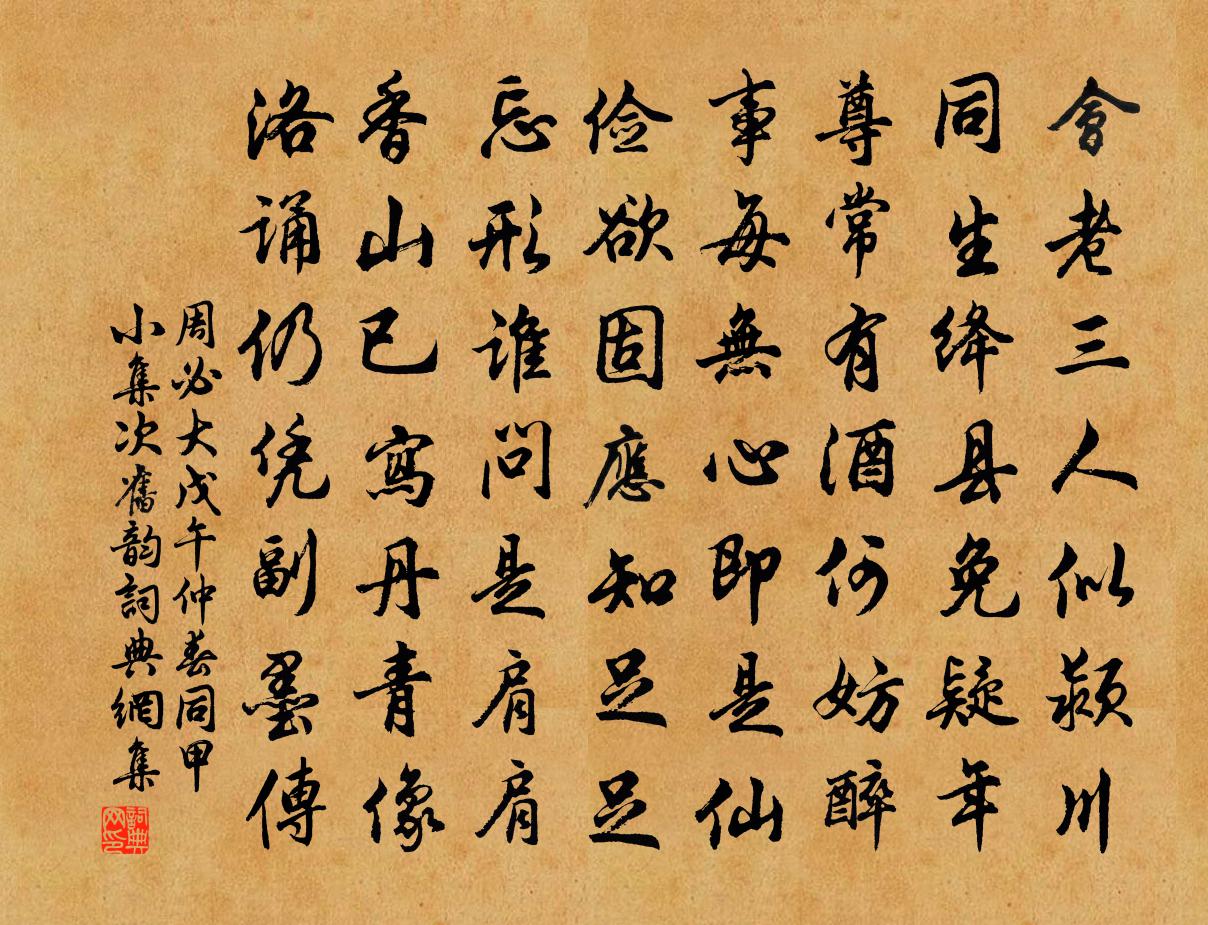 會老三人似潁川
同生绛县免疑年
尊常有酒何妨醉
事每無心即是仙
俭欲固應知足足
忘形谁问是肩肩
香山已寫丹青像
洛诵仍凭副墨傳
周必大戊午仲春同甲
小集次舊韵詞典網集
詞典
网印